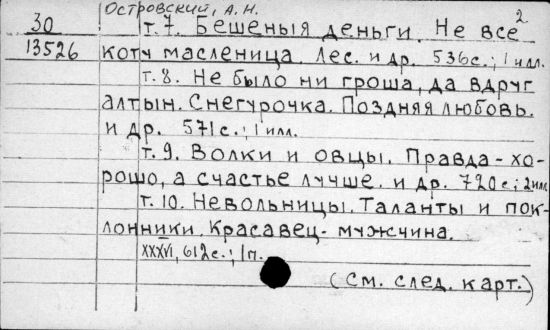 Островский, А. Н.
2
30 т. 7. Бешеныя деньги. Не все
13526 коту масленица. Лес. и др. 536 с.; 1 илл.
т. 8. Не было ни гроша, да вдруг
алтын. Снегурочка. Поздняя любовь.
и др. 571 с.; 1 илл.
т. 9. Волки и овцы. Правда - хо-
рошо, а счастье лучше. и др. 720 с.; 2 илл.
т. 10. Невольницы. Таланты и пок-
лонники. Красавец - мужчина.
XXXVI, 612 с.; 1 п.
(См. след. карт.)